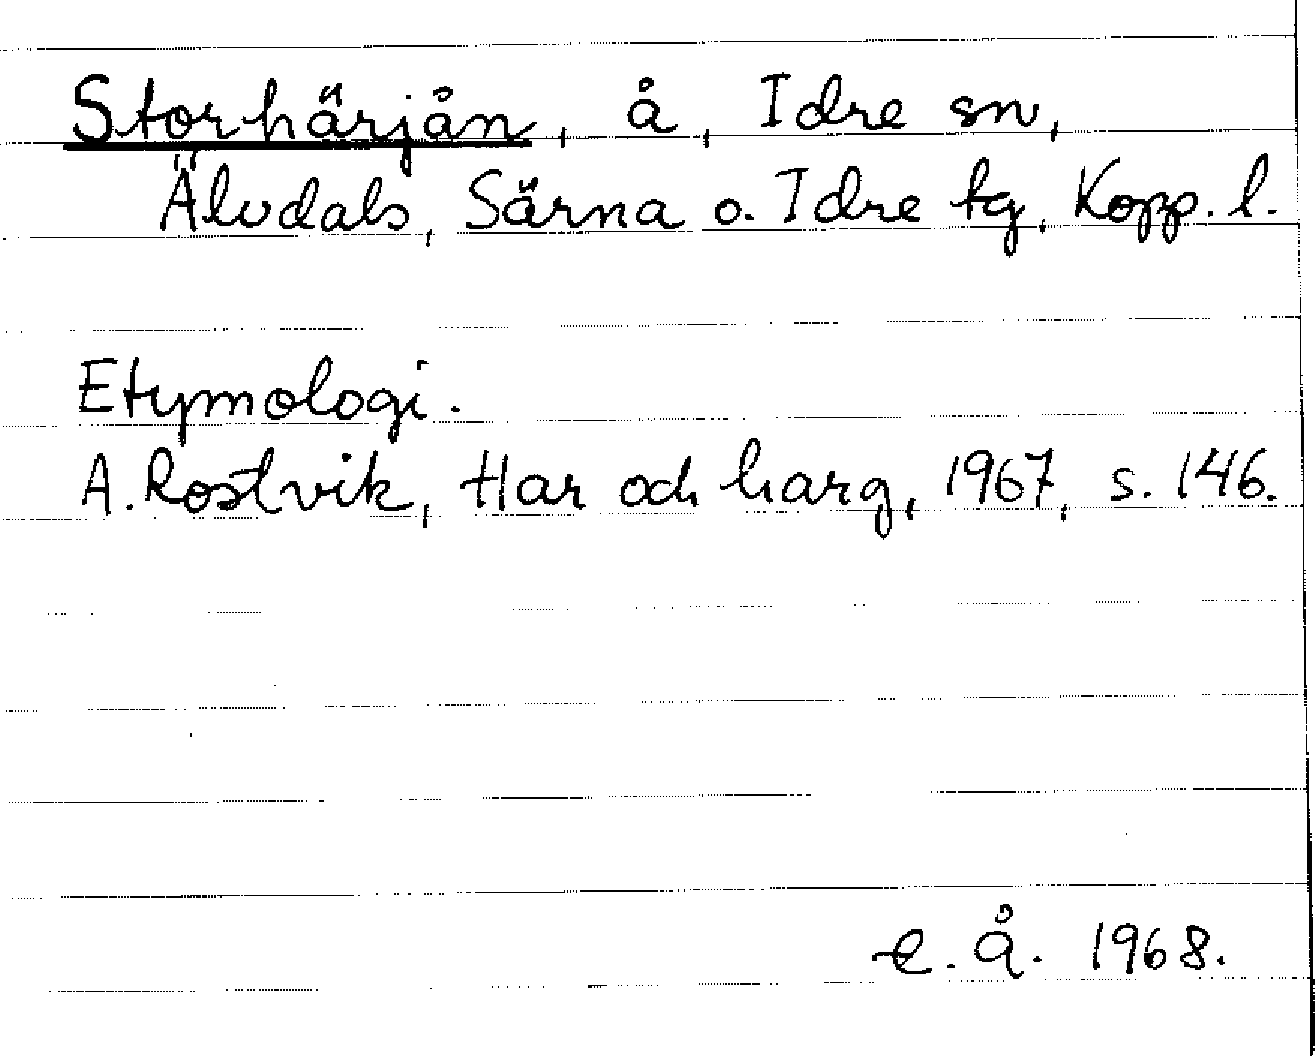 Storhärjån, å, Idre sn,
Älvdals, Särna o. Idre tg, Kopp. l.
Etymologi.
A. Rostvik, Har och harg, 1967, s. 146.
e. Å. 1968.